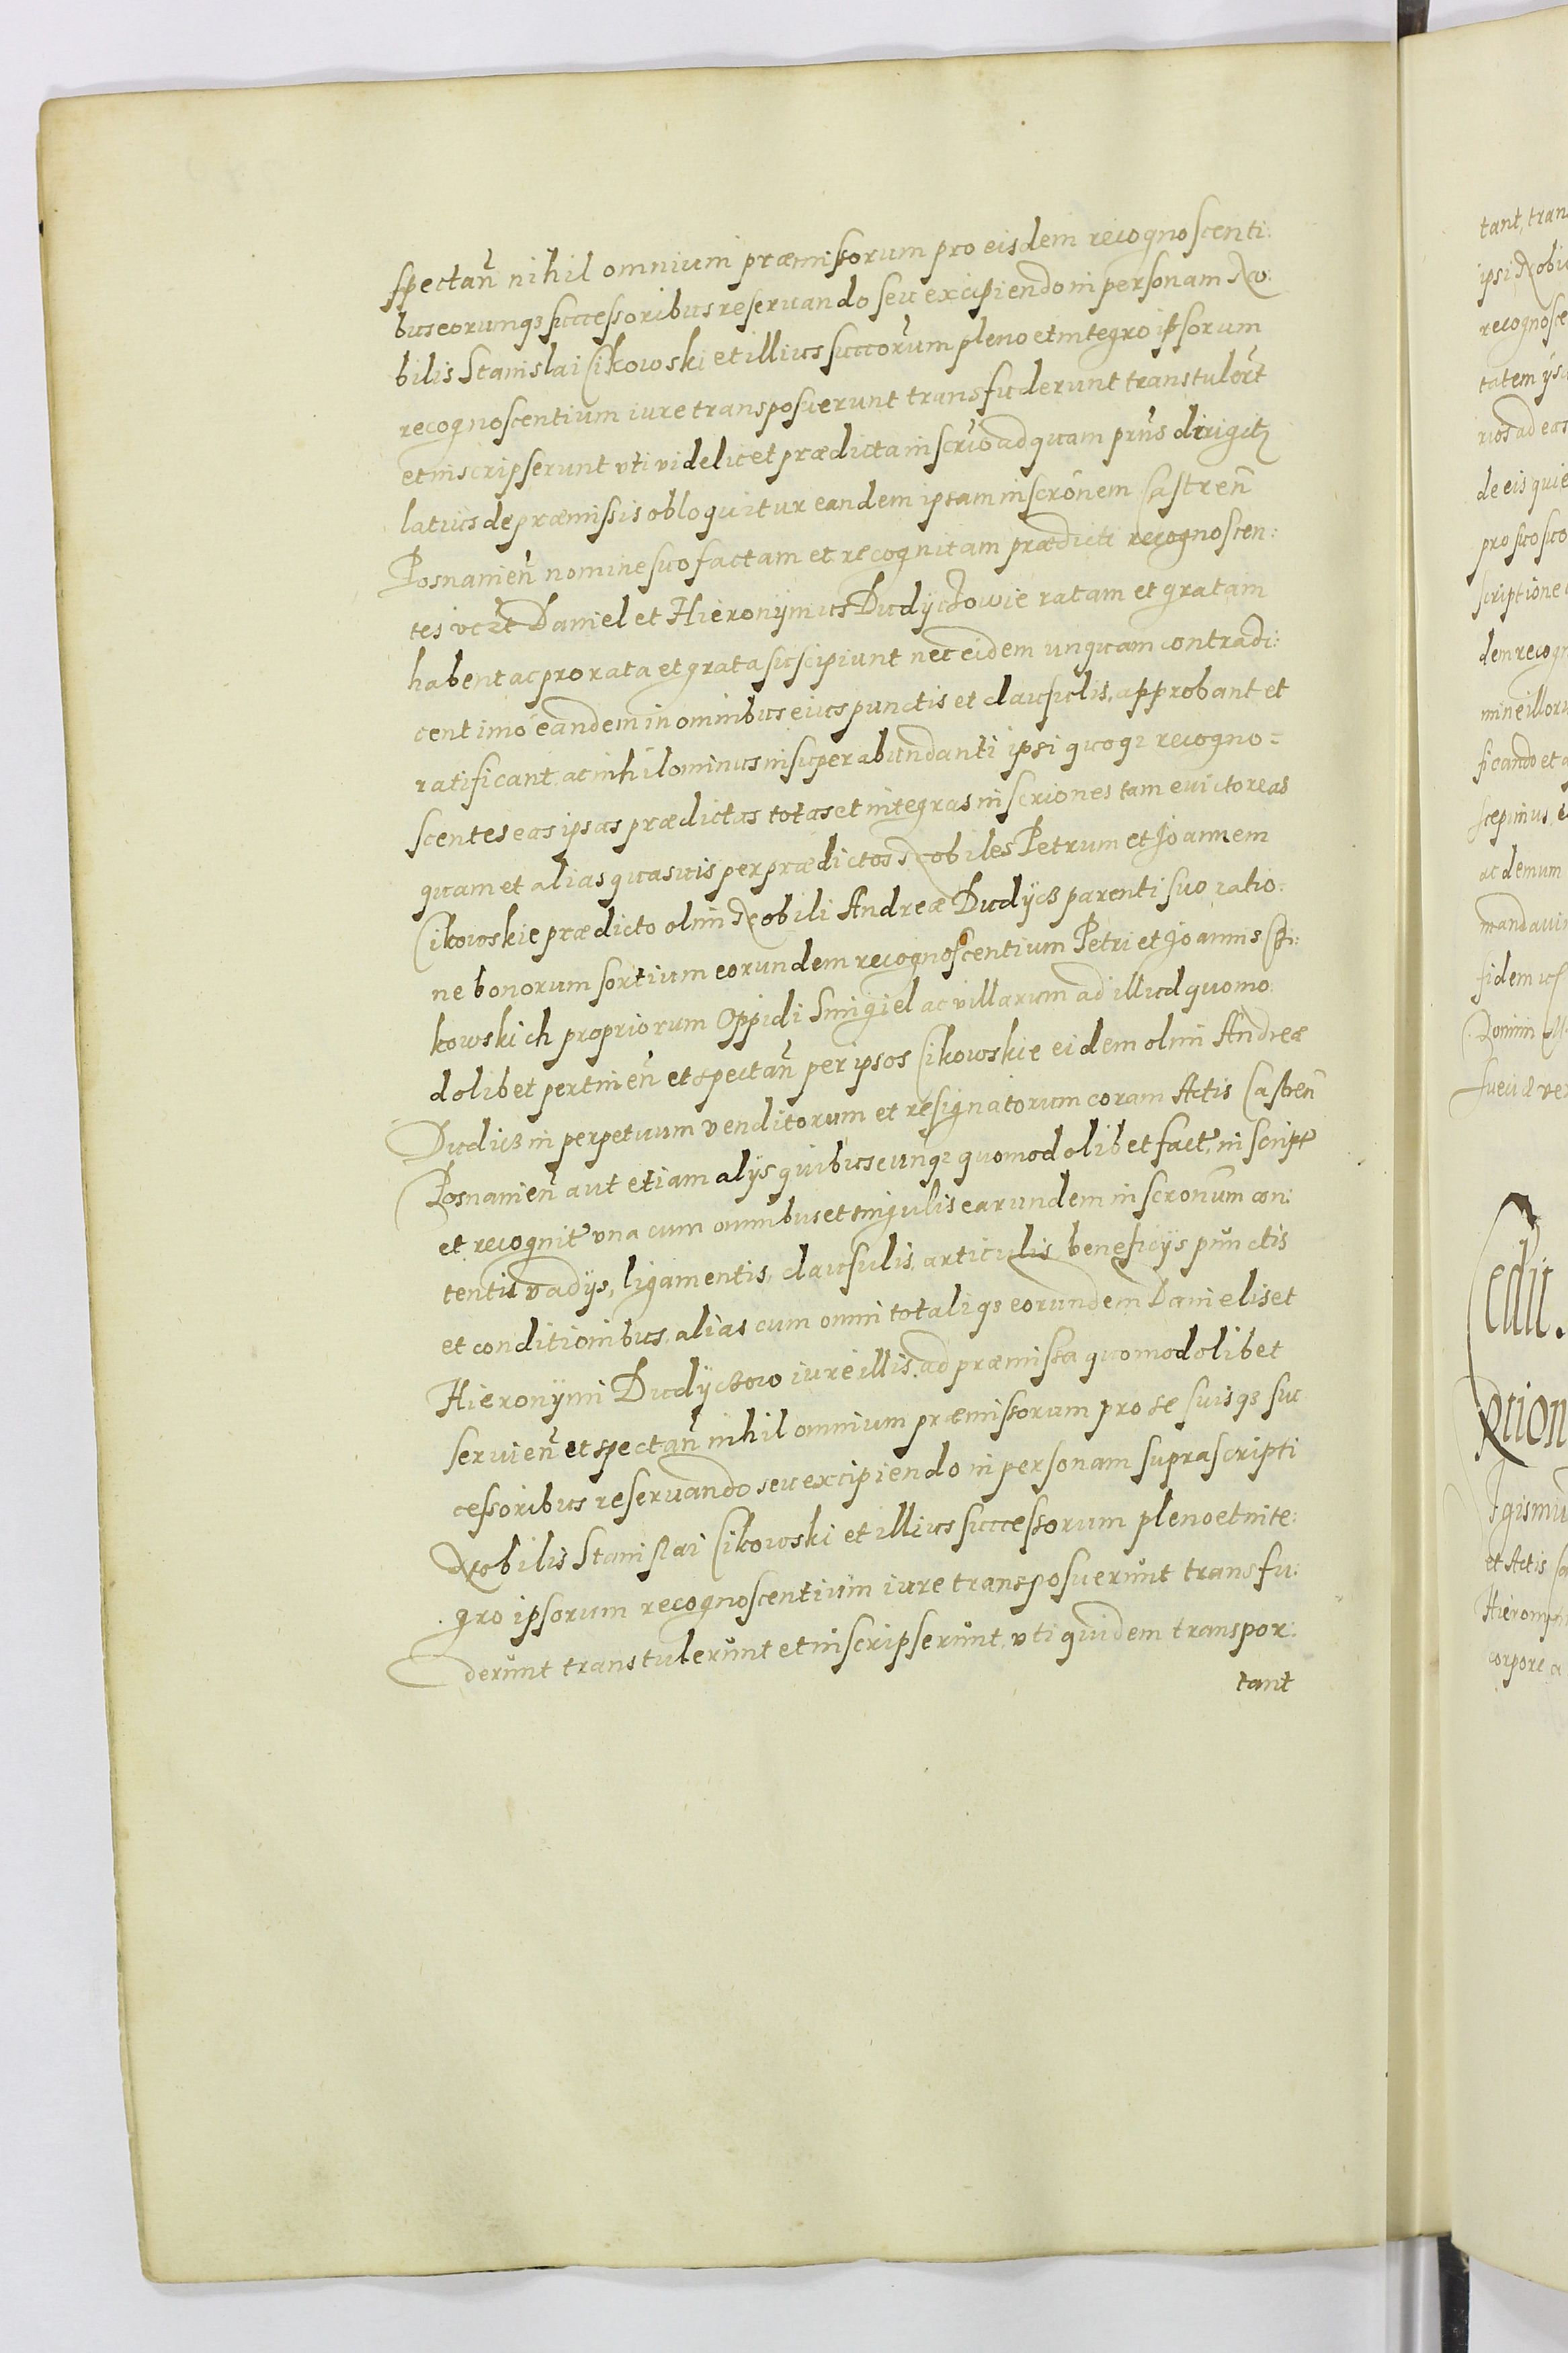 spectan̄ nihil omnium præmissorum pro eisdem recognoscenti:
bus eorumqꝫ successoribus reseruando seu excipiendo in personam No:
bilis Stanislai Cikowski et illius succorūm pleno et integro ipsorum
recognoscentium iure transposuerunt transfuderunt transtulert̄
et inscripserunt vti videlicet prædicta inscrio᷉ ad quam prn̄s dirigitꝫ
latius de præmissis obloquitur eandem ipsam inscrōnem Castren̄
Posnanien̄ nomine suo factam et recognitam prædicti recognoscen:
tes vczt Daniel et Hieronÿmus Dudÿczowie ratam et gratam
habent ac pro rata et grata suscipiunt nec eidem unquam contradi:
cent imò eandem in omnibus eius punctis et clausulis, approbant et
ratificant. at nihilominus in superabundanti ipsi quoqꝫ recogno=
scentes eas ipsas prædictas totas et integras inscriones tam euictoreas
quam et alias quasuis per prædictos Nobiles Petrum et Joannem
Cikowskie prædicto olim Nobili Andreæ Dudÿcz parenti suo ratio:
ne bonorum sortium eorundem recognoscentium Petri et Joannis Ci:
kowskich propriorum Oppidi Smigiel ac villarum ad illud quomo
dolibet pertinen̄ et spectan̄ per ipsos Cikowskie eidem olim Andreæ
Dudicz in perpetuum venditorum et resignatorum coram Actis Castren̄
Posnanien̄ aut etiam alÿs quibuscunqꝫ quomodolibet fact, inscript
et recognit vna cum omnibus et singulis earundem inscronūm con:
tentis vadÿs, ligamentis, clausulis, articulis beneficÿs pūnctis
et conditionibus, alias cum omni totaliqꝫ eorundem Danielis et
Hieronÿmi Dudÿczow iure illis, ad præmissa quomodolibet
seruien̄ et spectan̄ nihil omnium præmissorum pro se suisqꝫ suc
cessoribus reseruando seu excipiendo in personam suprascripti
Nobilis Stanislai Cikowski et illius successorum pleno et inte:
gro ipsorum recognoscentiūm iure transposuerūnt transfu:
derūnt transtulerūnt et inscripserūnt, vti quidem transpor:
tant
tant, tran
ipsi Nobi
recognosce
tatem ÿs
rios ad eas
de eis quie
pro suo suo
scriptione
dem recogn
mine illoru
ficando et a
scepimus,
ac demum
mandaui
fidem
Domin
suæ
Cedit.
ption
et Actis
Hieronÿm
corpore a